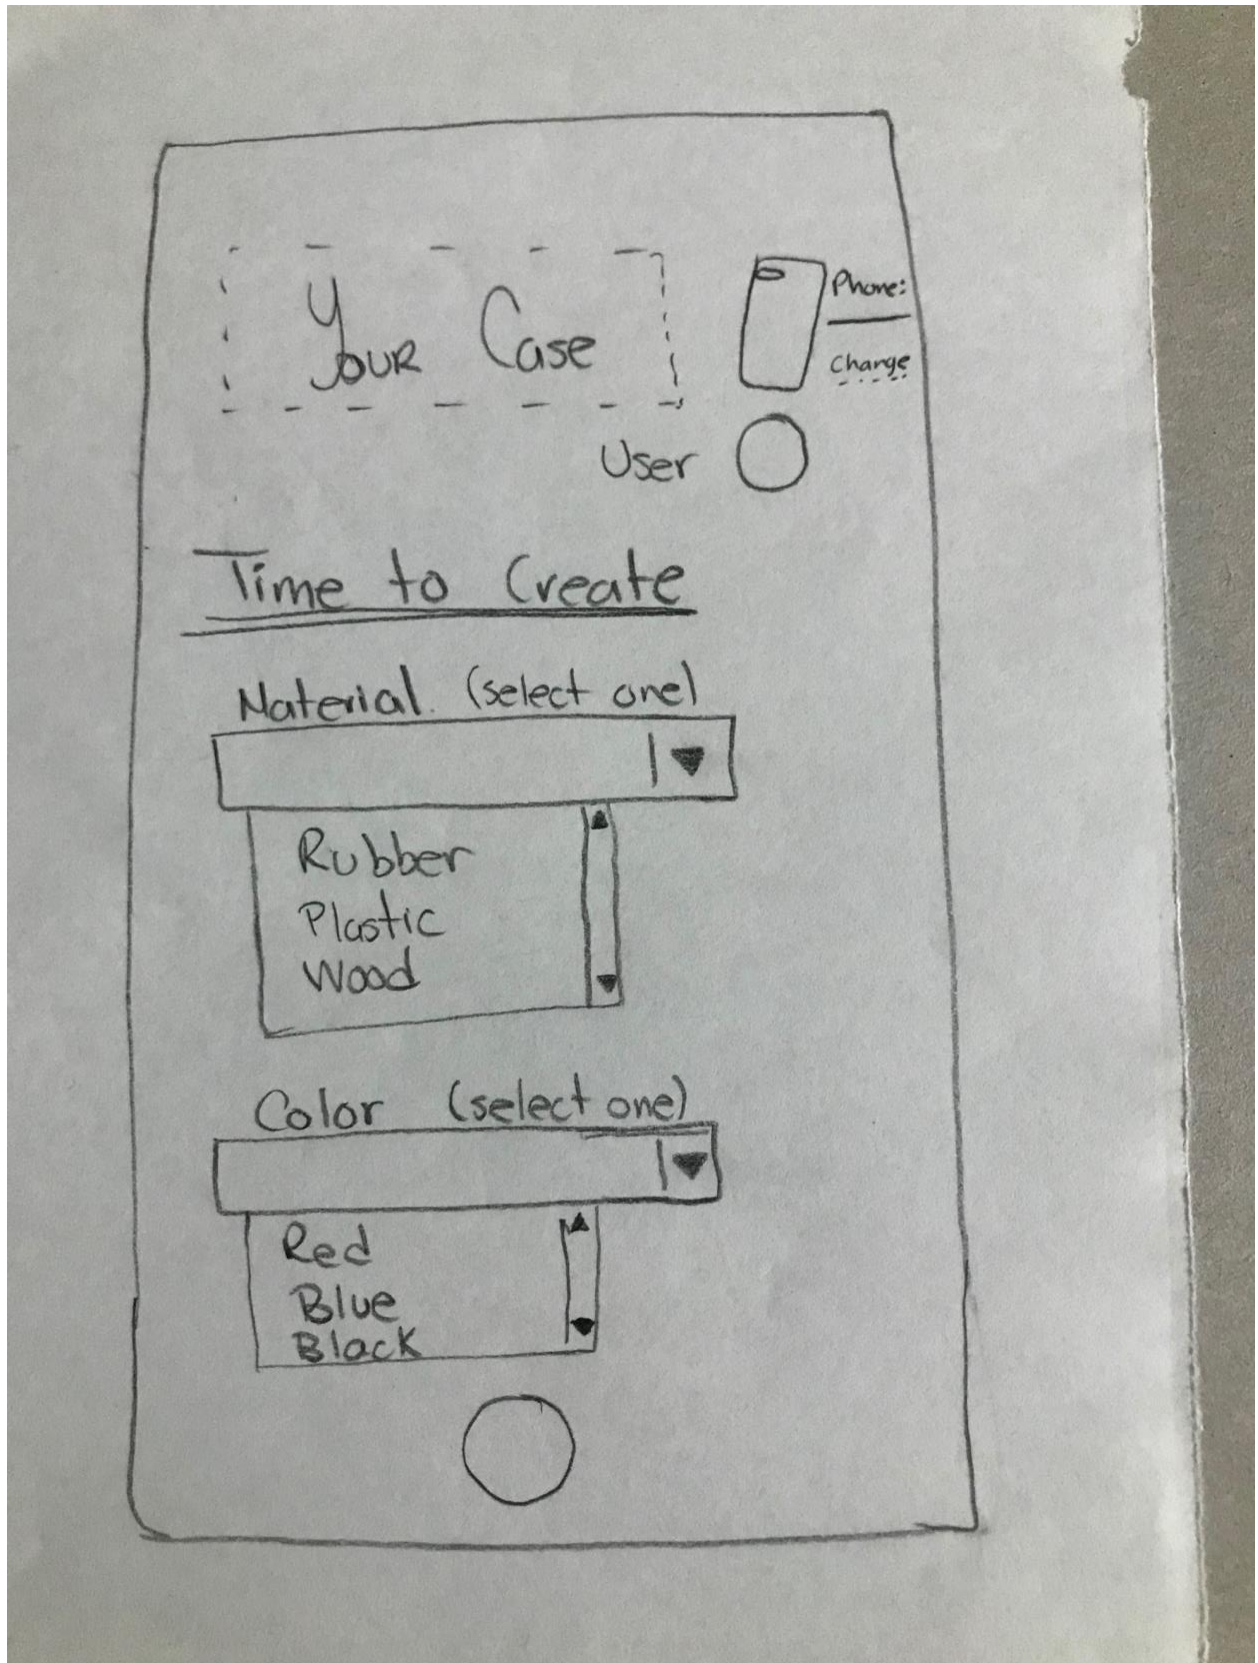 Your Case
Phone:
Change
User
Time to Create
Material (select one)
Rubber
Plastic
Wood
Color (select one)
Red
Blue
Black